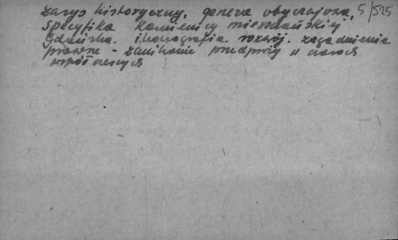 zarys historyczny, geneza obyczajowa, 5/525
specyfika kamienicy mieszczańskiej
Gdańska. ikonografia. rozwój. zagadnienia
prawne - zanikanie przedproży w czasach
współczesnych